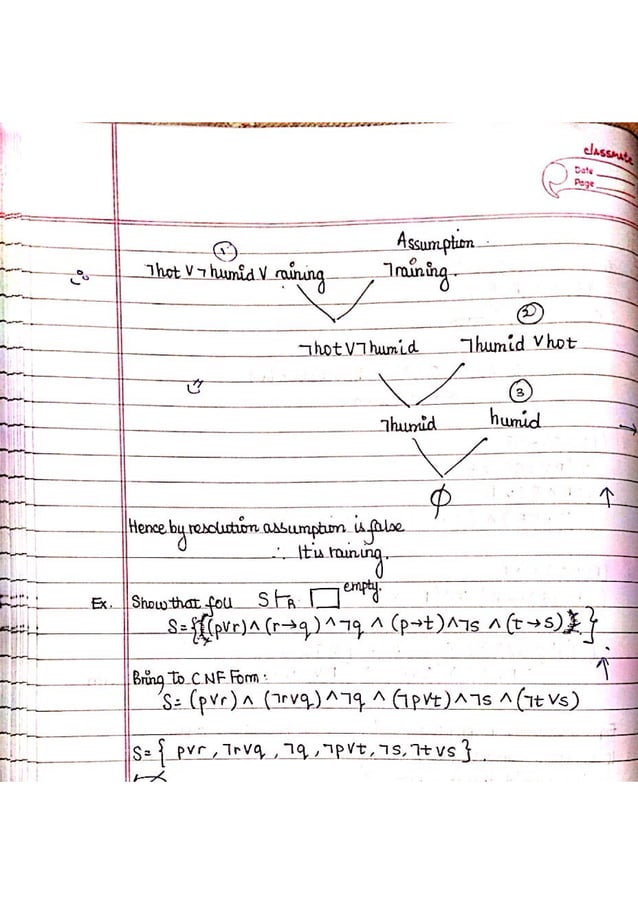 classmate
Date
Page
Assumption
①
¬hot V ¬humid V raining ¬raining.
②
¬hot V ¬humid ¬humid V hot
③
¬humid humid
ϕ
Hence by resolution assumption is false
∴ It is raining.
Ex. Show that foll S ⊢R □ empty.
S={((pvr) ∧ (r→q) ∧ ¬q ∧ (p→t) ∧ ¬s ∧ (t→s)}
Bring To CNF Form:
S= (pvr) ∧ (¬rvq) ∧ ¬q ∧ (¬pvt) ∧ ¬s ∧ (¬t vs)
S={ pvr, ¬rvq, ¬q, ¬pvt, ¬s, ¬t vs}